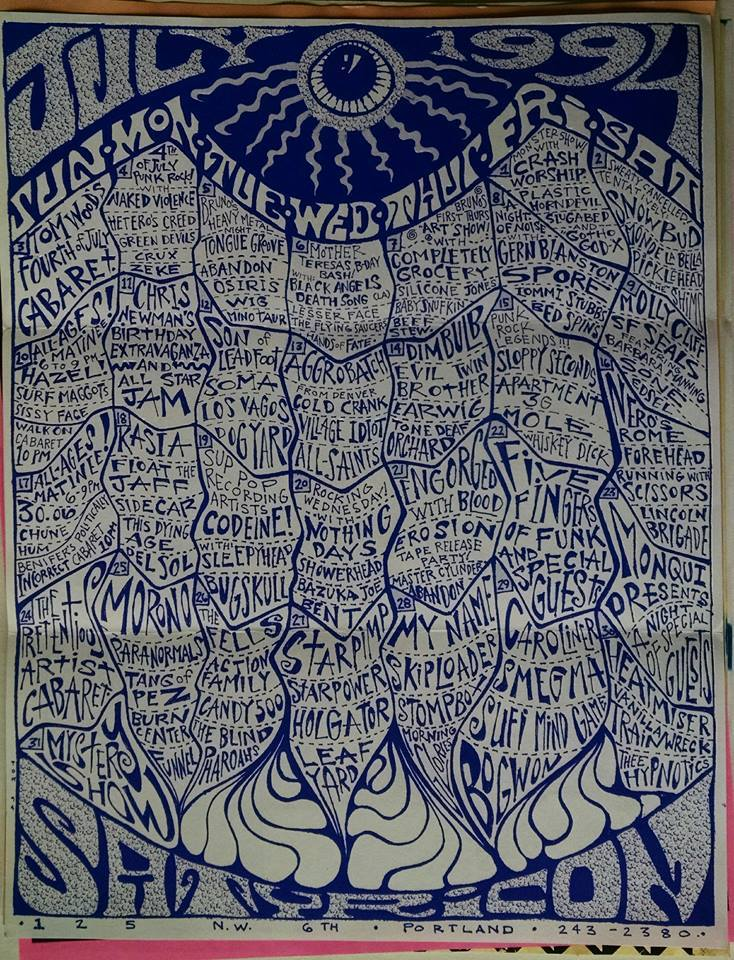 JULY 1994
SUN · MON · TUE · WED · THUR · FRI · SAT
1
MONSTER SHOW
WITH
CRASH
WORSHIP
PLASTIC
THORNDEVIL
SLUGABED
AND
GOTHO
GOD-X
2
SWEATY
TENTATIVELY CANCELLED
SNOWBUD
MONDE LA BELLA
PICKLEHEAD
THE SHIMS
3
TOM WOOD'S
FOURTH OF JULY
CABARET
4
4TH
OF JULY
PUNK ROCK!
WITH
NAKED VIOLENCE
HETEROS CREED
GREEN DEVILS
CRUX
ZEKE
5
BRUNO'S
HEAVY METAL
NIGHT
TONGUE GROVE
ABANDON
OSIRIS
WIG
MINOTAUR
6
MOTHER
TERESAS B-DAY
BASH
WITH
BLACK ANGELS
DEATH SONG (LA)
LESSER FACE
THE FLYING SAUCERS
HANDS OF FATE
7
BRUNO'S
FIRST THURS
"ART SHOW"
WITH
COMPLETELY
GROCERY
SILICONE JONES
BABY SNUFKIN
BEEF
STEW
8
A
NIGHT
OF NOISE
WITH
GERN BLANSTON
SPORE
TOMMI STUBBS
BED SPINS
9
MOLLY CLIFF
SF SEALS
BARBARA MANNING
ZONE
EDSEL
10
ALL-AGES!
MATINEE
6 TO 9 PM
HAZEL
SURF MAGGOTS
SISSY FACE
WALK ON
CABARET
10 PM
11
CHRIS
NEWMAN'S
BIRTHDAY
EXTRAVAGANZA
AND
ALL STAR
JAM
12
SON OF
LEADFOOT
SOMA
LOS VAGOS
DOGYARD
13
AGGROBATCH
FROM DENVER
COLD CRANK
VILLAGE IDIOT
ALL-SAINTS
14
DIMBULB
EVIL TWIN
BROTHER
EARWIG
TONE DEAF
ORCHARD
15
PUNK
ROCK
LEGENDS!!!
SLOPPY SECONDS
APARTMENT
3G
MOLE
WHISKEY DICK
16
NERO'S
ROME
FOREHEAD
RUNNING WITH
SCISSORS
LINCOLN
BRIGADE
17
ALL-AGES!
MATINEE!
6-9PM
30.06
CHUNE
HUM
BENIFER'S POLITICALLY
INCORRECT CABARET 10PM
18
RASIA
FLOAT THE
JAFF
SIDECAR
THIS DYING
AGE
DEL SOL
19
SUP POP
RECORDING
ARTISTS
CODEINE!
WITH
SLEEPYHEAD
BUGSKULL
20
ROCKING
WEDNESDAY!
WITH
NOTHING
DAYS
SHOWERHEAD
BAZUKA JOE
BENT
21
ENGORGED
WITH BLOOD
EROSION
TAPE RELEASE
PARTY
MASTER CYLINDER
ABANDON
22
FIVE
FINGERS
OF FUNK
AND SPECIAL
GUESTS
23
MONQUI
PRESENTS
A NIGHT
OF SPECIAL
GUESTS
24
THE
RETENTIOUS
ARTIST
CABARET
25
MORONO
PARANORMALS
TANG OF
PEZ
BURN
CENTER
FUNNEL
26
THE
FELLS
ACTION
FAMILY
CANDY 500
THE BLIND
PHAROAHS
27
STARPIMP
STARPOWER
HOLGATOR
LEAF
YARD
28
MY NAME
SKIPLOADER
STOMPBOX
MORNING
GLORIES
29
CAROLINER
SMEGMA
SUFI MIND GAME
BOGWON
30
HEATMISER
VANILLA
TRAINWRECK
THEE
HYPNOTICS
31
MYSTERY
SHOW
SATYRICON
· 125 N.W. 6TH · PORTLAND · 243-2380 ·